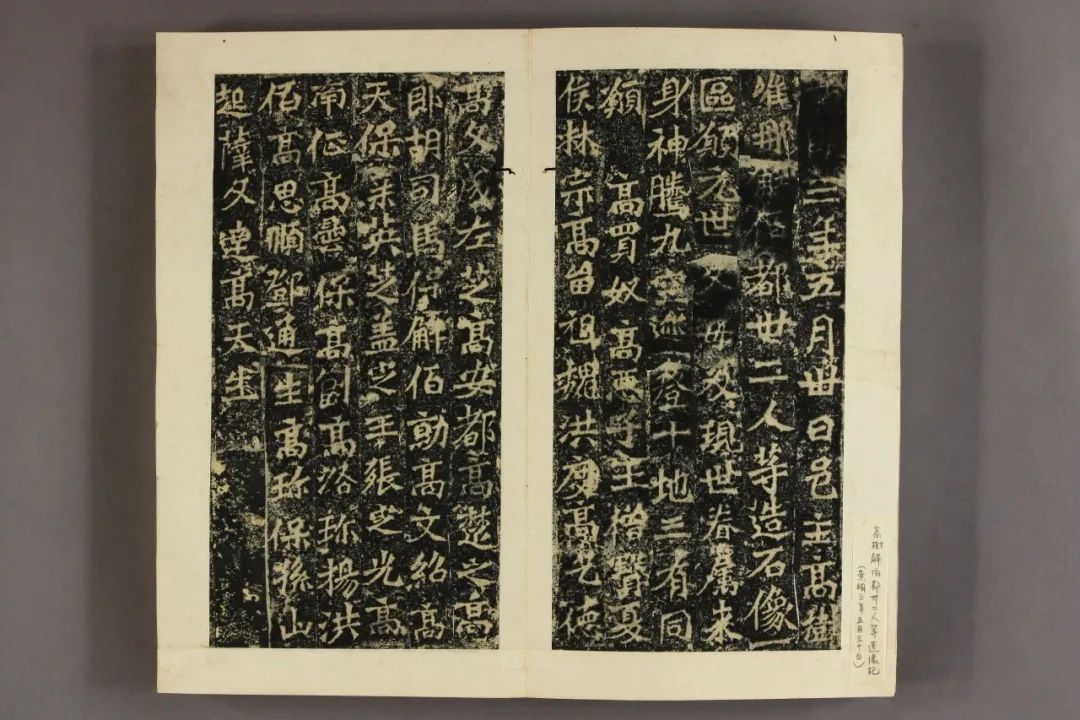 景明三年五月卅日邑主高樹
唯那解佰都卅二人等造石像一
區願元世父母及現世眷屬來
身神騰九空迹登十地三有同
願 高買奴高惡子王僧寶夏
侯林宗高留祖魏洪度高乞德
高文成左芝高安都高楚之高
郎胡司馬保解佰勍高文紹高
天保 英芝蓋定王張定光高
南征高曇保高副高洛珍楊洪
佰高思順鄧通生高珍保孫山
起薩文達高天生
高樹解伯都卅二人等造像記
(景明三年五月三十日)